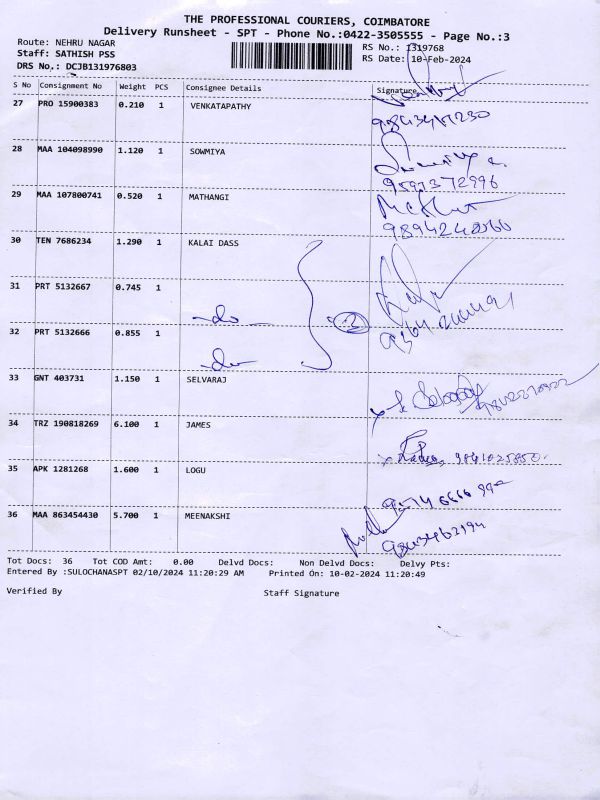 THE PROFESSIONAL COURIERS, COIMBATORE
Delivery Runsheet - SPT - Phone No.:0422-3505555 - Page No.:3
Route: NEHRU NAGAR
Staff: SATHISH PSS
DRS No.: DCJB131976803
RS No.: 1319768
RS Date: 10-Feb-2024
S No Consignment No Weight PCS Consignee Details Signature
27 PRO 15900383 0.210 1 VENKATAPATHY
28 MAA 104098990 1.120 1 SOWMIYA
9597372996
29 MAA 107800741 0.520 1 MATHANGI
30 TEN 7686234 1.290 1 KALAI DASS
31 PRT 5132667 0.745 1
do
32 PRT 5132666 0.855 1
do
33 GNT 403731 1.150 1 SELVARAJ
34 TRZ 190818269 6.100 1 JAMES
35 APK 1281268 1.600 1 LOGU
36 MAA 863454430 5.700 1 MEENAKSHI
Tot Docs: 36 Tot COD Amt: 0.00 Delvd Docs: Non Delvd Docs: Delvy Pts:
Entered By :SULOCHANASPT 02/10/2024 11:20:29 AM Printed On: 10-02-2024 11:20:49
Verified By Staff Signature